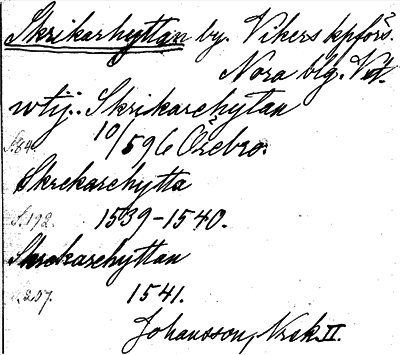 Skrikarhyttan by. Vikers kpförs.
Nora blg. Vst.
wtij.. Skrikarehytan
S. 84. 10/5 96 Örebro.
Skrekarehytta
S. 192. 1539-1540.
Skrekarehyttan
S. 257. 1541.
Johansson, Nrsk II.